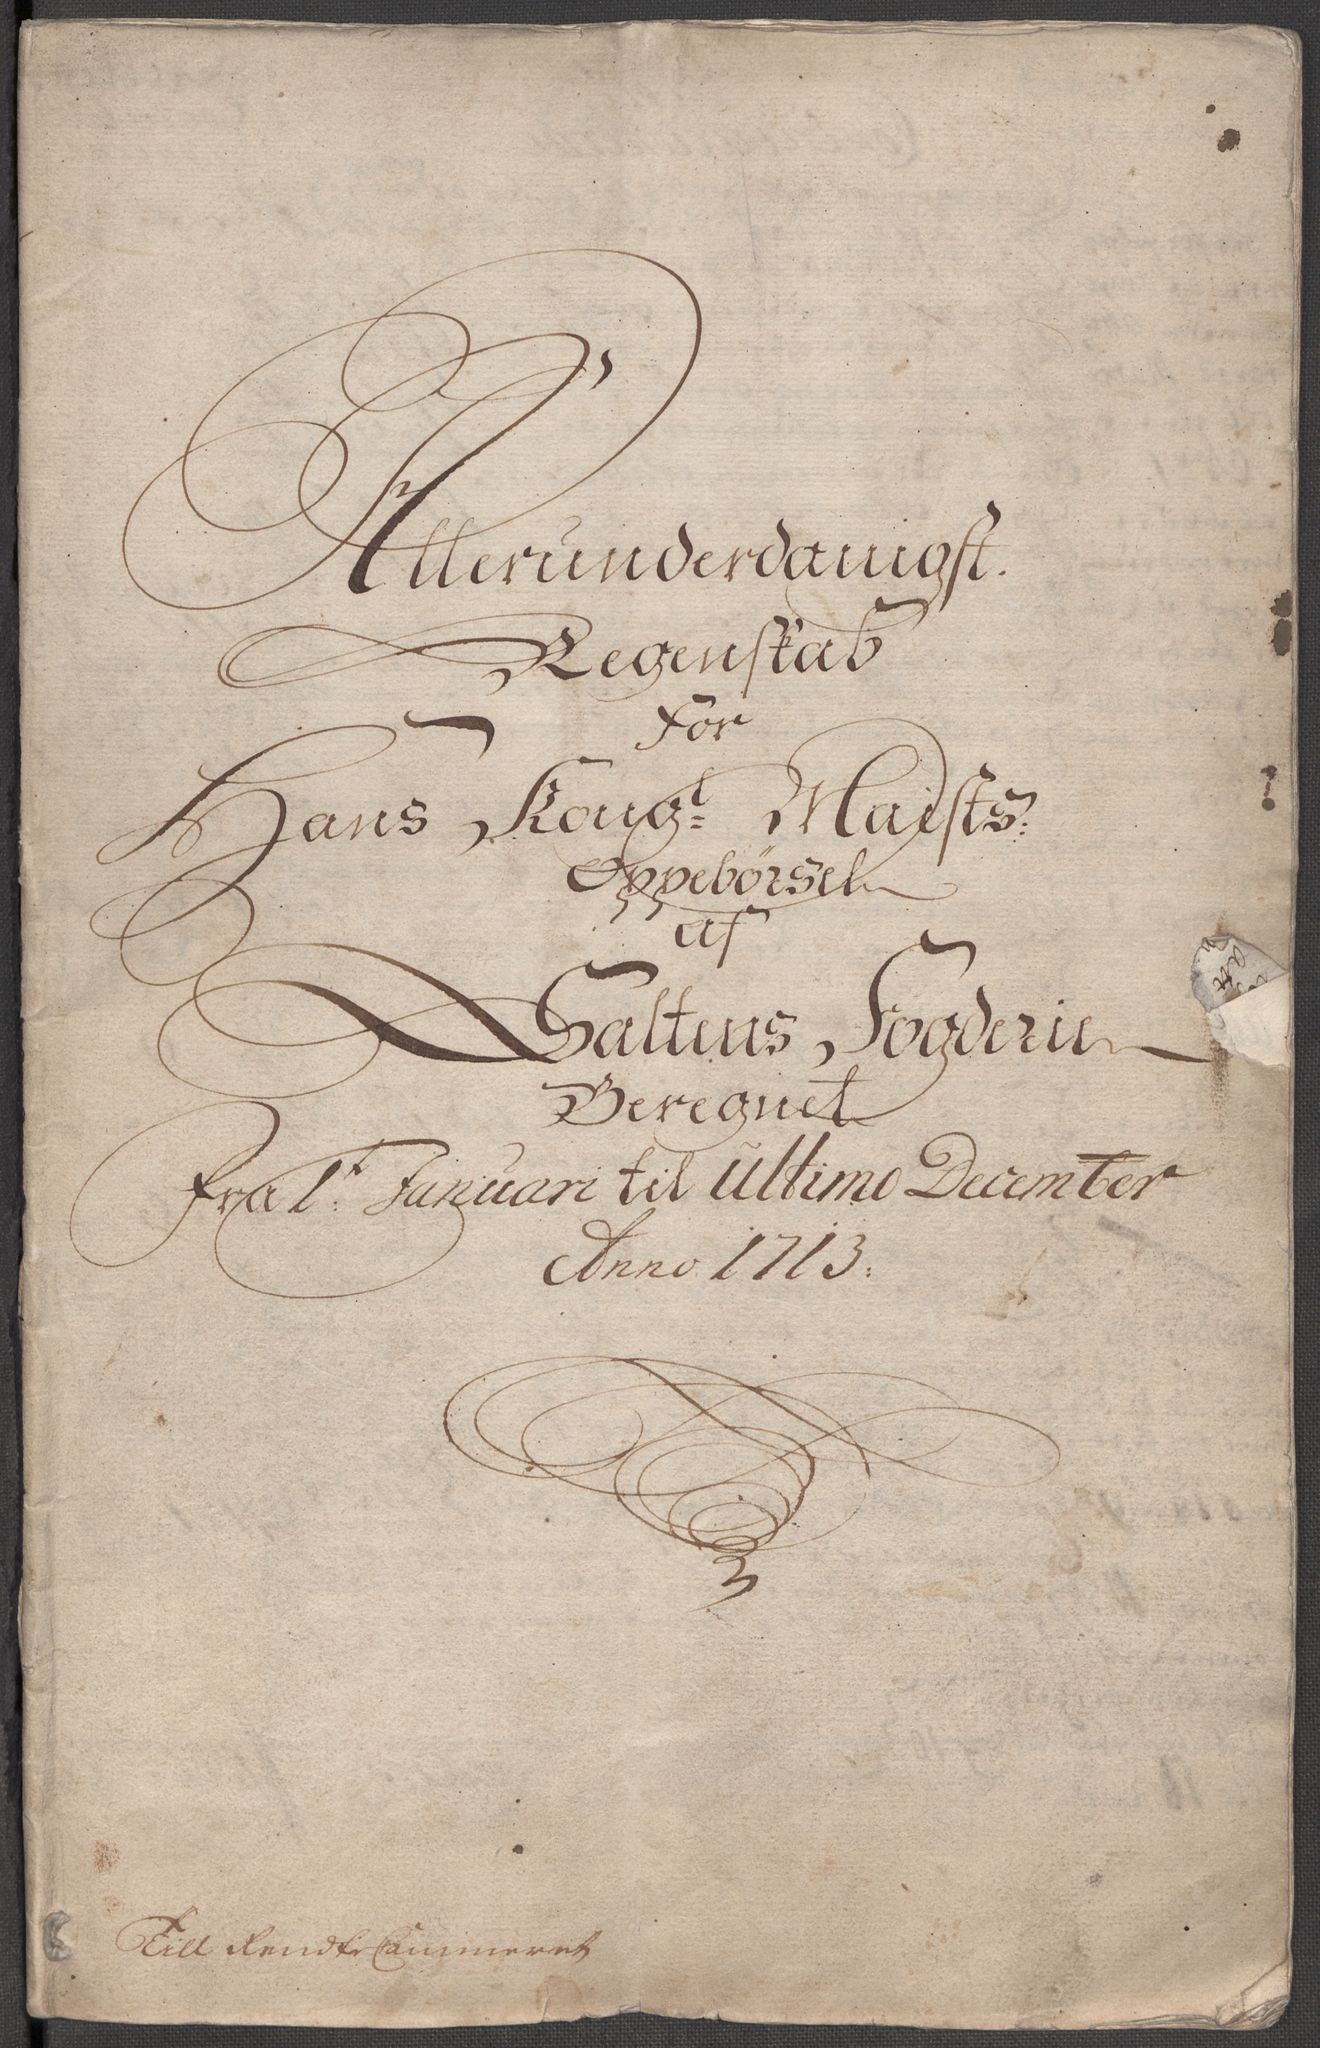 Allerunderdanigst.
Regenskab
for
Hans Kongl: Maÿsts:
Oppebörsel
af
Saltens Fogderie
Beregnet
fra 1t: Januari til Ultimo December
Anno 1713:
Till Rendte Cammeret